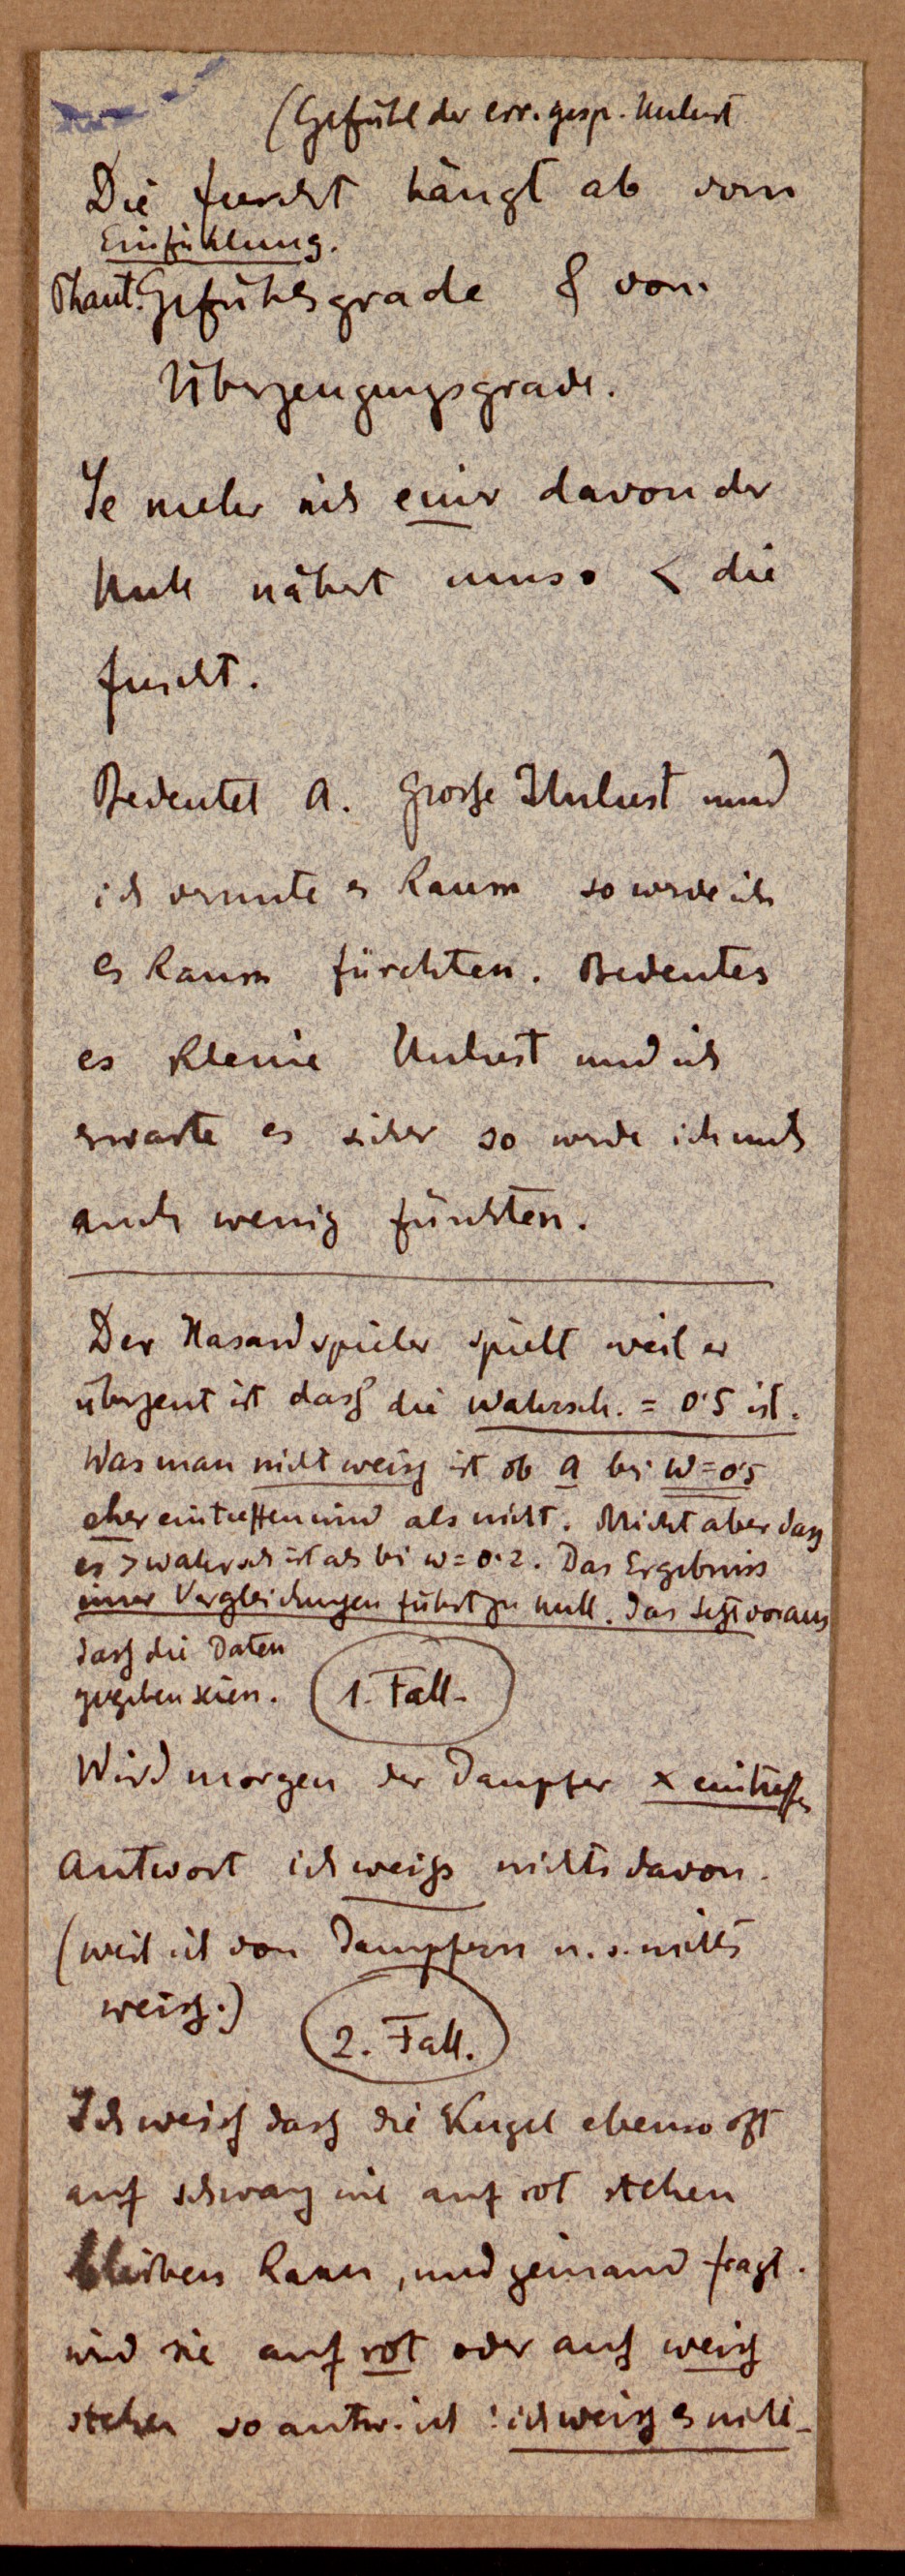 (Gefühl der err. gesp. Unlust
Die furcht hängt ab vom
Einfühlung.
Phant. Gefühlsgrade & vom
Überzeugungsgrade.
Je mehr sich einer davon der
Null nähert umso < die
furcht.
Bedeutet A. grosse Unlust und
ich vermute es kaum so werde ich
es kaum fürchten. Bedeutet
es kleine Unlust und ich
erwarte es sicher so werde ich mich
auch wenig fürchten.
Der Hasardspieler spielt weil er
überzeut ist dass die Wahrsch. = 0·5 ist.
Was man nicht weiss ist ob A bei W=0·5
eher eintreffen wird als nicht. Nicht aber dass
es > wahrsch ist als bei w = 0·2. Das Ergebniss
einer Vergleichungen führt zu null. Das setzt voraus
dass die Daten
gegeben seien. 1. Fall.
Wird morgen der Dampfer x eintreffen
Antwort ich weiss nichts davon.
(weil ich von Dampfern u. s. nichts
weiss.)
2. Fall.
Ich weiss dass die Kugel ebenso oft
auf schwarz wie auf rot stehen
bleiben kann, und jemand fragt.
wird sie auf rot oder auf weiss
stehen so antw. ich : ich weiss es nicht